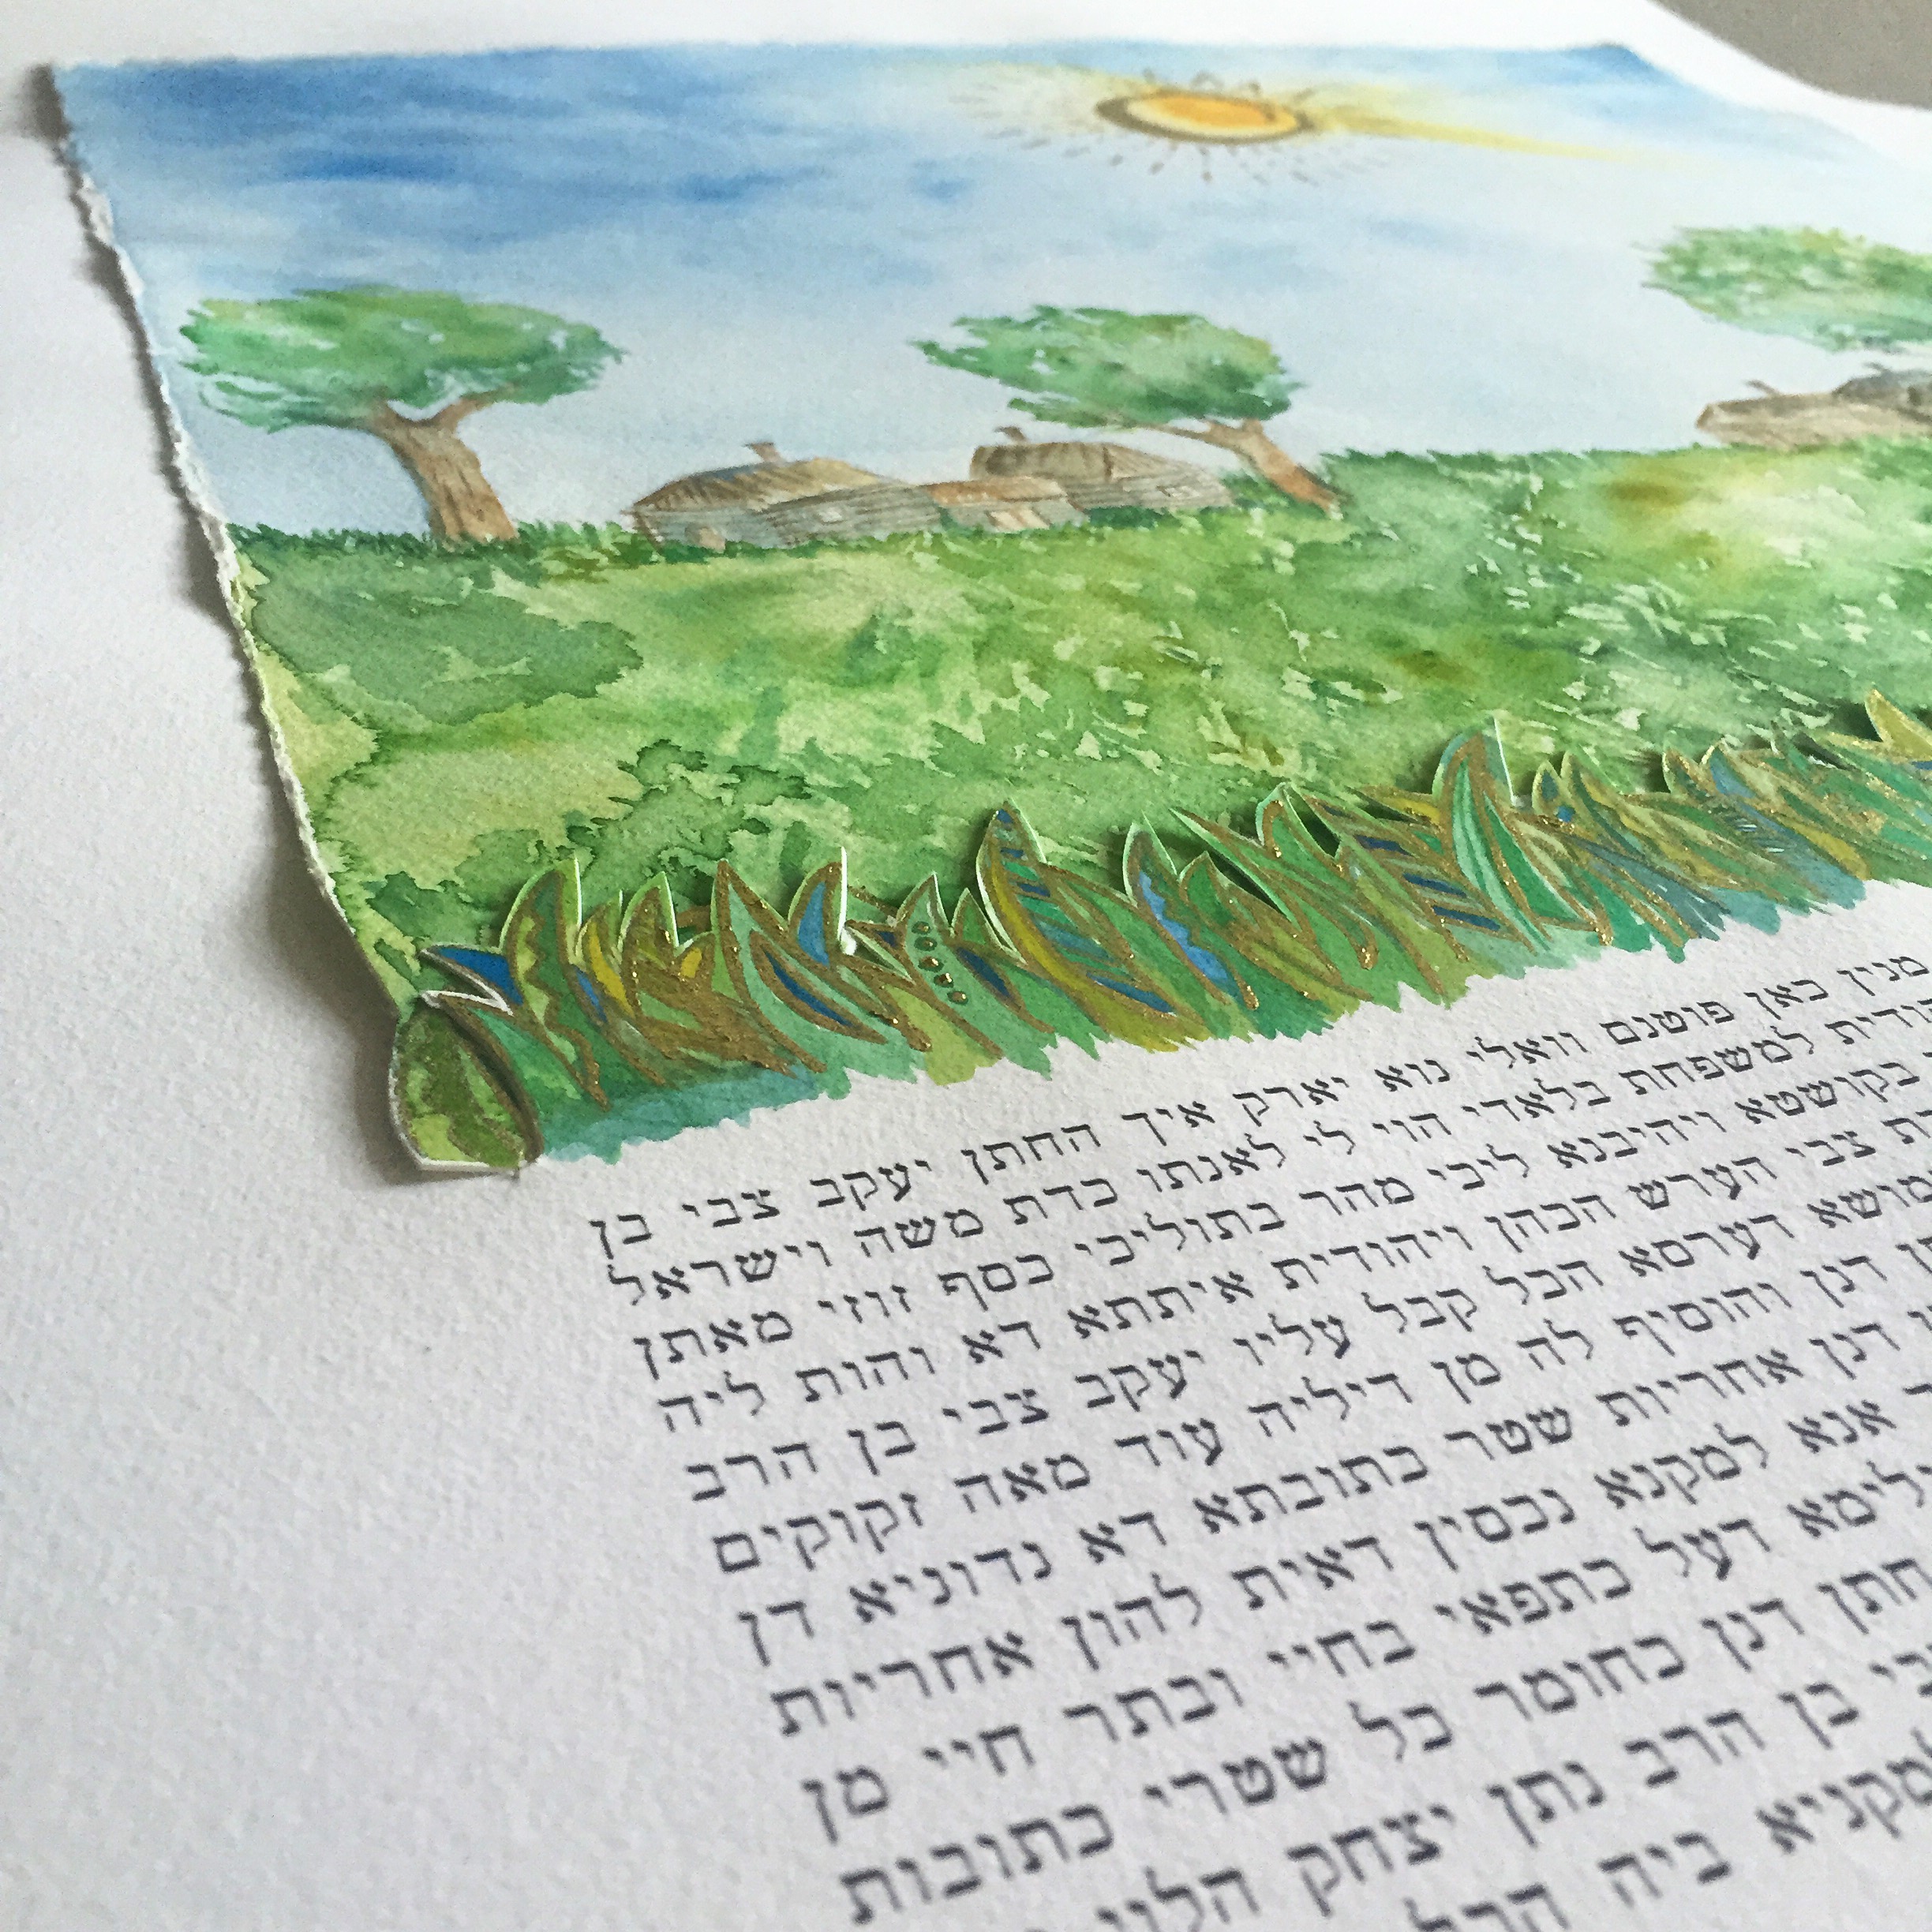 מנין כאן פוטנם וואלי נוא יארק איך החתן יעקב צבי בן
למשפחת בלאדי הוי לי לאנתו כדת משה וישראל
בקושטא ויהיבנא ליכי מהר בתוליכי כסף זוזי מאתן
צבי הערש הכהן ויהודית איתתא דא והות ליה
דערסא הכל קבל עליו יעקב צבי בן הרב
דנן והוסיף לה מן דיליה עוד מאה זקוקים
דנן אחריות שטר כתובתא דא נדוניא דן
אנא למקנא נכסין דאית להון אחריות
דעל כתפאי בחיי ובתר חיי מן
חתן דנן כחומר כל שטרי כתובות
בן הרב נתן יצחק הלוי
למקניא ביה הכל